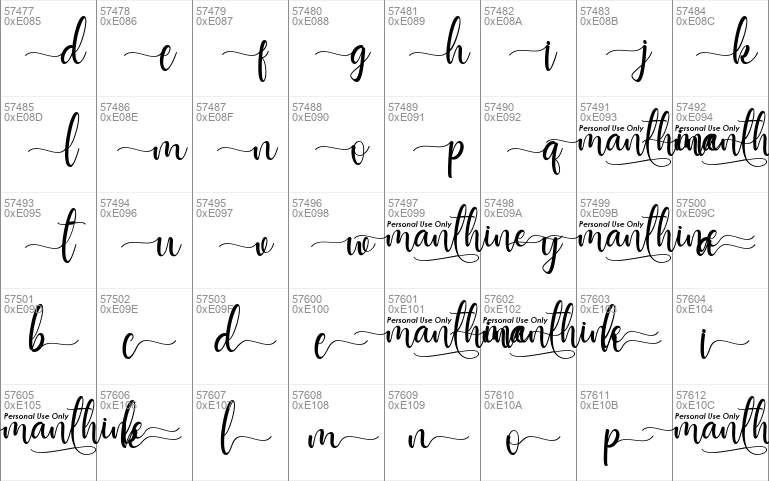 57477 57478 57479 57480 57481 57482 57483 57484
0xE085 0xE086 0xE087 0xE088 0xE089 0xE08A 0xE08B 0xE08C
d e f g h i j k
57485 57486 57487 57488 57489 57490 57491 57492
0xE08D 0xE08E 0xE08F 0xE090 0xE091 0xE092 0xE093 0xE094
Personal Use Only Personal Use Only
l m n o p q manthine manth
57493 57494 57495 57496 57497 57498 57499 57500
0xE095 0xE096 0xE097 0xE098 0xE099 0xE09A 0xE09B 0xE09C
Personal Use Only Personal Use Only
t u v w manthine y manthine a
57501 57502 57503 57600 57601 57602 57603 57604
0xE09D 0xE09E 0xE09F 0xE100 0xE101 0xE102 0xE103 0xE104
Personal Use Only Personal Use Only
b c d e manthine manthine h i
57605 57606 57607 57608 57609 57610 57611 57612
0xE105 0xE106 0xE107 0xE108 0xE109 0xE10A 0xE10B 0xE10C
Personal Use Only Personal Use Only
manthine k l m n o p manth